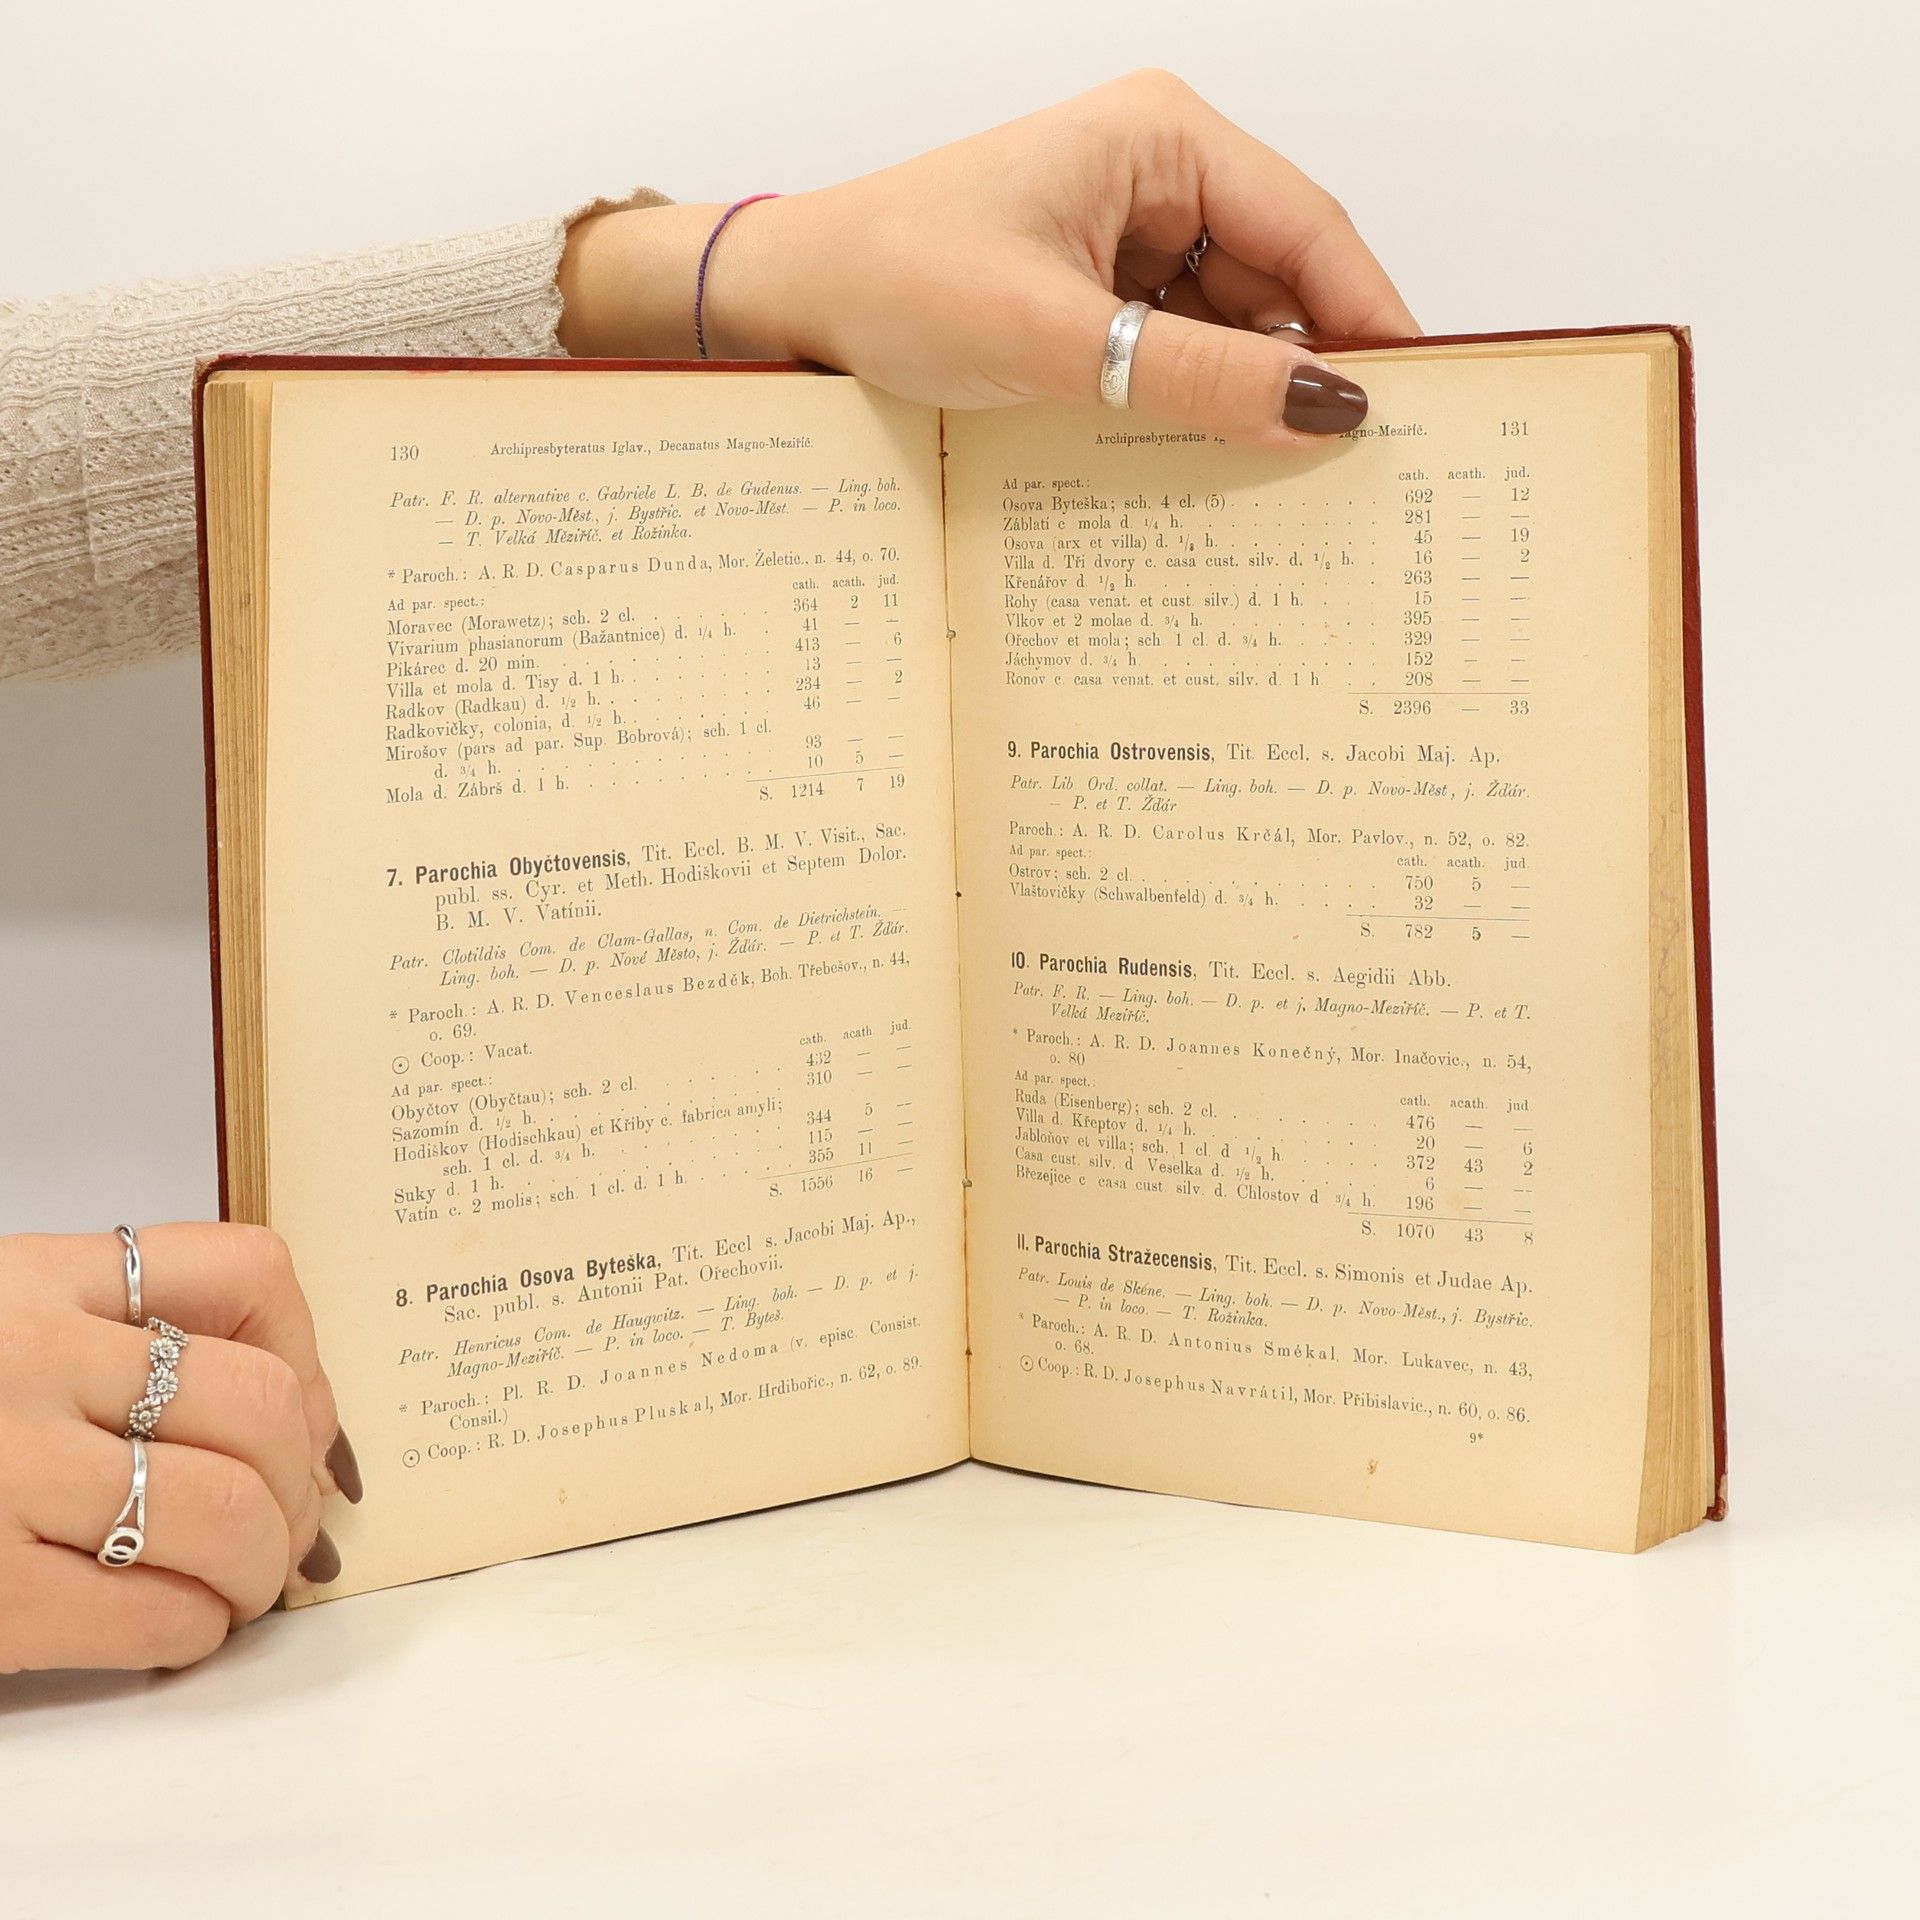 130 Archipresbyteratus Iglav., Decanatus Magno-Meziříč.
Patr. F. R. alternative c. Gabriele L. B. de Gudenus. — Ling. boh.
— D. p. Novo-Měst., j. Bystřic. et Novo-Měst. — P. in loco.
— T. Velká Měziříč. et Rožinka.
* Paroch.: A. R. D. Casparus Dunda, Mor. Želetic., n. 44, o. 70.
cath. acath. jud.
Ad par. spect.:
Moravec (Morawetz); sch. 2 cl. . . . . . . 364 2 11
Vivarium phasianorum (Bažantnice) d. 1/4 h. . 41 — —
Pikárec d. 20 min. . . . . . . . . 413 — 6
Villa et mola d. Tisy d. 1 h. . . . . . . 13 — —
Radkov (Radkau) d. 1/2 h. . . . . . . . 234 — 2
Radkovičky, colonia, d. 1/2 h. . . . . . . 46 — —
Mirošov (pars ad par. Sup. Bobrová); sch. 1 cl.
d. 3/4 h. . . . . . . . . . 93 — —
Mola d. Zábrš d. 1 h. . . . . . . . . 10 5 —
S. 1214 7 19
7. Parochia Obyčtovensis, Tit. Eccl. B. M. V. Visit., Sac.
publ. ss. Cyr. et Meth. Hodiškovii et Septem Dolor.
B. M. V. Vatínii.
Patr. Clotildis Com. de Clam-Gallas, n. Com. de Dietrichstein. —
Ling. boh. — D. p. Nové Město, j. Žďár. — P. et T. Žďár.
* Paroch.: A. R. D. Venceslaus Bezděk, Boh. Třebešov., n. 44,
o. 69.
☉ Coop.: Vacat.
cath. acath. jud.
Ad par. spect.:
Obyčtov (Obyčtau); sch. 2 cl. . . . . . . 432 — —
Sazomín d. 1/2 h. . . . . . . . . . 310 — —
Hodiškov (Hodischkau) et Křiby c. fabrica amyli;
sch. 1 cl. d. 3/4 h. . . . . . . . 344 5 —
Suky d. 1 h. . . . . . . . . . . 115 — —
Vatín c. 2 molis; sch. 1 cl. d. 1 h. . . . . 355 11 —
S. 1556 16 —
8. Parochia Osova Byteška, Tit. Eccl s. Jacobi Maj. Ap.,
Sac. publ. s. Antonii Pat. Ořechovii.
Patr. Henricus Com. de Haugwitz. — Ling. boh. — D. p. et j.
Magno-Meziříč. — P. in loco. — T. Byteš.
* Paroch.: Pl. R. D. Joannes Nedoma (v. episc. Consist.
Consil.)
☉ Coop.: R. D. Josephus Pluskal, Mor. Hrdibořic., n. 62, o. 89.
Archipresbyteratus Magno-Meziříč. 131
cath. acath. jud.
Ad par. spect.:
Osova Byteška; sch. 4 cl. (5) . . . . . . 692 — 12
Záblatí c mola d. 1/4 h. . . . . . . . 281 — —
Osova (arx et villa) d. 1/8 h. . . . . . . 45 — 19
Villa d. Tři dvory c. casa cust. silv. d. 1/2 h. . 16 — 2
Křenářov d 1/2 h. . . . . . . . . . 263 — —
Rohy (casa venat. et cust. silv.) d. 1 h. . . 15 — —
Vlkov et 2 molae d. 3/4 h. . . . . . . 395 — —
Ořechov et mola; sch 1 cl. d. 3/4 h. . . . . 329 — —
Jáchymov d. 3/4 h . . . . . . . . . 152 — —
Ronov c. casa venat. et cust. silv. d. 1 h . . 208 — —
S. 2396 — 33
9. Parochia Ostrovensis, Tit. Eccl. s. Jacobi Maj. Ap.
Patr. Lib Ord. collat. — Ling. boh. — D. p. Novo-Měst, j. Žďár.
— P. et T. Žďár
Paroch.: A. R. D. Carolus Krčál, Mor. Pavlov., n. 52, o. 82.
Ad par. spect.: cath. acath. jud.
Ostrov; sch. 2 cl. . . . . . . . . . 750 5 —
Vlaštovičky (Schwalbenfeld) d. 3/4 h. . . . . 32 — —
S. 782 5 —
10. Parochia Rudensis, Tit. Eccl. s. Aegidii Abb.
Patr. F. R. — Ling. boh. — D. p. et j, Magno-Meziříč. — P. et T.
Velká Meziříč.
* Paroch.: A. R. D. Joannes Konečný, Mor. Inačovic., n. 54,
o. 80
Ad par. spect.: cath. acath. jud
Ruda (Eisenberg); sch. 2 cl. . . . . . . 476 — —
Villa d. Křeptov d. 1/4 h. . . . . . . . 20 — 6
Jabloňov et villa; sch. 1 cl. d 1/2 h. . . . . 372 43 2
Casa cust. silv. d Veselka d. 1/2 h. . . . . 6 — —
Březejice c casa cust silv. d. Chlostov d 3/4 h. 196 — —
S. 1070 43 8
11. Parochia Stražecensis, Tit. Eccl. s. Simonis et Judae Ap.
Patr. Louis de Skéne. — Ling. boh. — D. p. Novo-Měst., j. Bystřic.
— P. in loco. — T. Rožinka.
* Paroch.: A. R. D. Antonius Smékal, Mor. Lukavec, n. 43,
o. 68.
☉ Coop.: R. D. Josephus Navrátil, Mor. Přibislavic., n. 60, o. 86.
9*